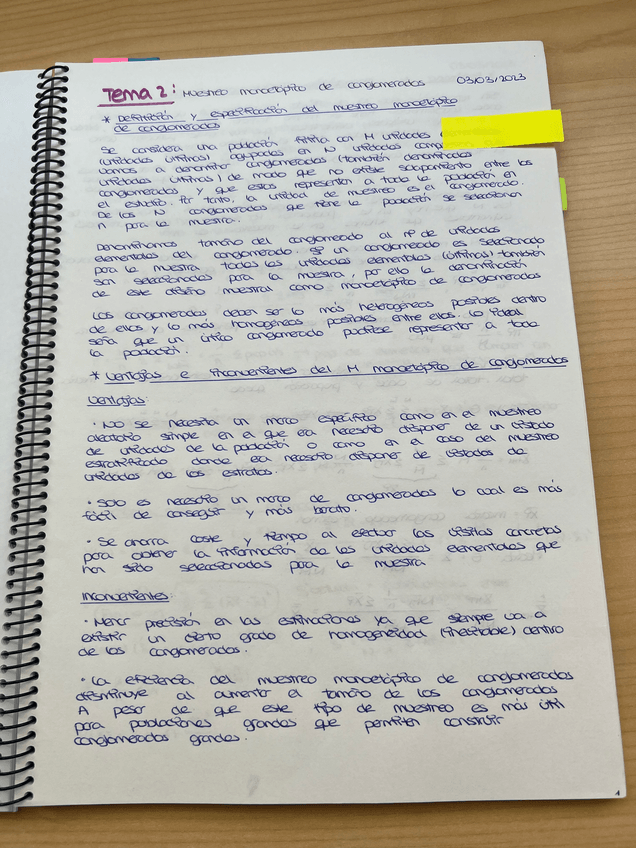 Tema 2: Muestreo monoetápico de conglomerados 03/03/2023
* Definición y especificación del muestreo monoetápico
de conglomerados
Se considera una población finita con M unidades
(unidades últimas) agrupadas en N unidades
vamos a denominar conglomerados (también denominadas
unidades últimas) de modo que no existe solapamiento entre los
conglomerados y que estos representan a toda la población en
el estudio. Por tanto, la unidad de muestreo es el conglomerado.
De los N conglomerados que tiene la población se seleccionan
n para la muestra.
Denominamos tamaño del conglomerado al nº de unidades
elementales del conglomerado. Si un conglomerado es seleccionado
para la muestra todas las unidades elementales (últimas) también
son seleccionadas para la muestra, por ello la denominación
de este diseño muestral como monoetápico de conglomerados
Los conglomerados deben ser lo más heterogéneos posibles dentro
de ellos y lo más homogéneos posibles entre ellos. Lo ideal
sería que un único conglomerado pudiese representar a toda
la población.
* Ventajas e inconvenientes del M monoetápico de conglomerados
Ventajas:
· No se necesita un marco específico como en el muestreo
aleatorio simple en el que era necesario disponer de un listado
de unidades de la población o como en el caso del muestreo
estratificado donde era necesario disponer de listados de
unidades de los estratos.
· Solo es necesario un marco de conglomerados lo cual es más
fácil de conseguir y más barato.
· Se ahorra coste y tiempo al efectuar las visitas concretas
para obtener la información de las unidades elementales que
han sido seleccionadas para la muestra
Inconvenientes:
· Menor precisión en las estimaciones ya que siempre va a
existir un cierto grado de homogeneidad (inevitable) dentro
de los conglomerados.
· La eficiencia del muestreo monoetápico de conglomerados
disminuye al aumentar el tamaño de los conglomerados
A pesar de que este tipo de muestreo es más útil
para poblaciones grandes que permiten construir
conglomerados grandes.
1